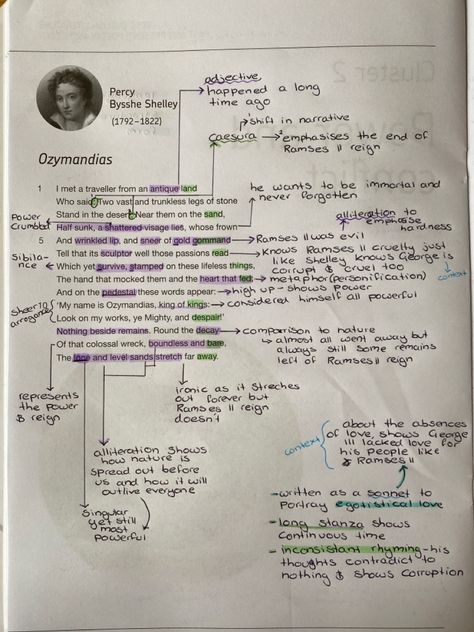 adjective
happened a long
time ago
Percy
Bysshe Shelley
(1792–1822)
shift in narrative
caesura → emphasises the end of
Ramses II reign
Ozymandias
he wants to be immortal and
never forgotten
1 I met a traveller from an antique land
Who said: Two vast and trunkless legs of stone
Stand in the desert. Near them on the sand,
Half sunk, a shattered visage lies, whose frown
5 And wrinkled lip, and sneer of cold command
Tell that its sculptor well those passions read
Which yet survive, stamped on these lifeless things,
The hand that mocked them and the heart that fed:
And on the pedestal these words appear:
10 'My name is Ozymandias, king of kings:
Look on my works, ye Mighty, and despair!'
Nothing beside remains. Round the decay
Of that colossal wreck, boundless and bare,
The lone and level sands stretch far away.
Power
Crumbled
Sibila-
nce
Sheer
arrogance
alliteration to
emphasise
hardness
Ramses II was evil
knows Ramses II cruelty just
like Shelley knows George is
corrupt & cruel too
context
metaphor (personification)
high up - shows power
considered himself all powerful
comparison to nature
almost all went away but
always still some remains
left of Ramses II reign
represents
the power
& reign
ironic as it streches
out forever but
Ramses II reign
doesn't
alliteration shows
how nature is
spread out before
us and how it will
outlive everyone
singular
yet still
most
powerful
context
about the absences
of love, shows George
III lacked love for
his people like
Ramses II
- written as a sonnet to
portray egotistical love
- long stanza shows
continuous time
- inconsistant rhyming - his
thoughts contradict to
nothing & shows corruption